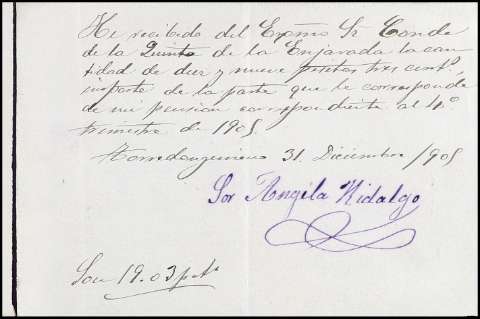 He recibido del Exçmo Sr Conde
de la Quinta de la Enjarada la can
tidad de diez y nueve pesetas tres cents,
importe de la parte que le corresponde
de mi pension correspondiente al 4º
trimestre de 1905
Torredonjimeno 31 Diciembre /905
Sor Angela Hidalgo
Son 19.03 pts